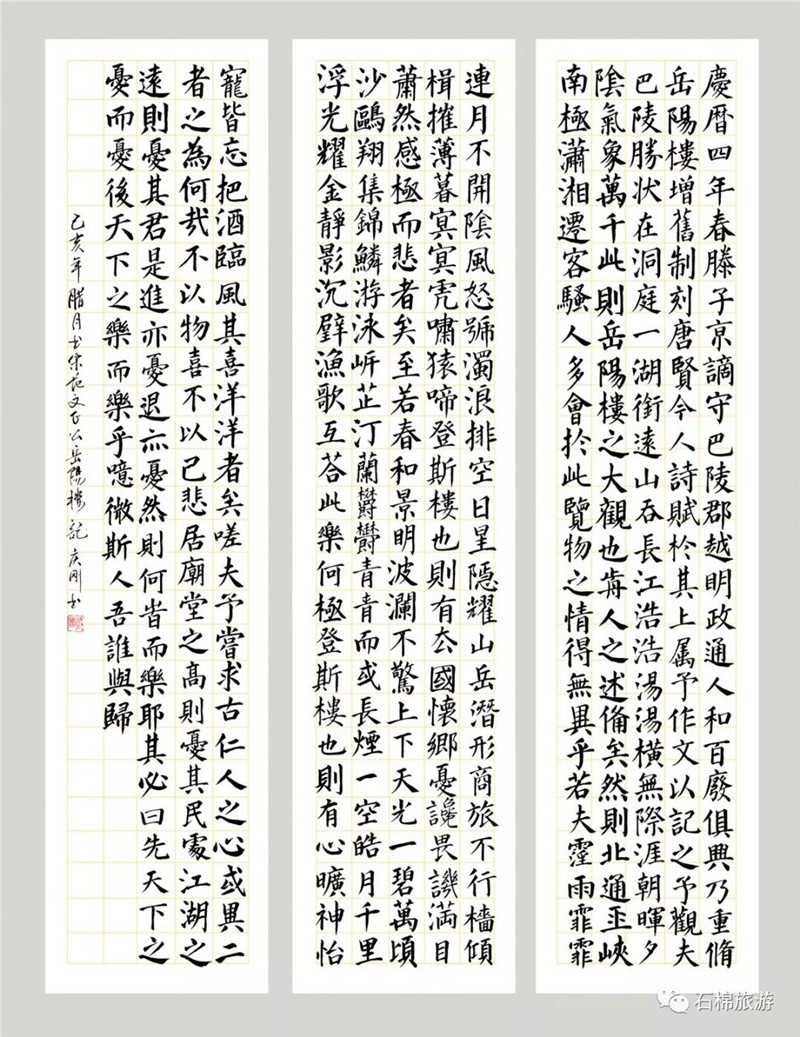 慶曆四年春滕子京謫守巴陵郡越明政通人和百廢俱興乃重脩
岳陽樓增舊制刻唐賢今人詩賦於其上属予作文以記之予觀夫
巴陵勝状在洞庭一湖銜遠山吞長江浩浩湯湯橫無際涯朝暉夕
陰氣象萬千此則岳陽樓之大觀也歬人之述俻矣然則北通巫峽
南極瀟湘遷客騷人多會於此覽物之情得無異乎若夫霪雨霏霏
連月不開陰風怒號濁浪排空日星隱耀山岳潛形商旅不行檣傾
楫摧薄暮冥冥虎嘯猿啼登斯樓也則有去國懷鄉憂讒畏譏滿目
蕭然感極而悲者矣至若春和景明波瀾不驚上下天光一碧萬頃
沙鷗翔集錦鱗游泳岸芷汀蘭欝欝青青而或長煙一空皓月千里
浮光耀金靜影沉璧漁歌互荅此樂何極登斯樓也則有心曠神怡
寵皆忘把酒臨風其喜洋洋者矣嗟夫予嘗求古仁人之心或異二
者之為何哉不以物喜不以己悲居廟堂之高則憂其民處江湖之
遠則憂其君是進亦憂退亦憂然則何旹而樂耶其必曰先天下之
憂而憂後天下之樂而樂乎噫微斯人吾誰與歸
己亥年腊月书宋范文正公岳陽樓記 庆刚书
石棉旅游